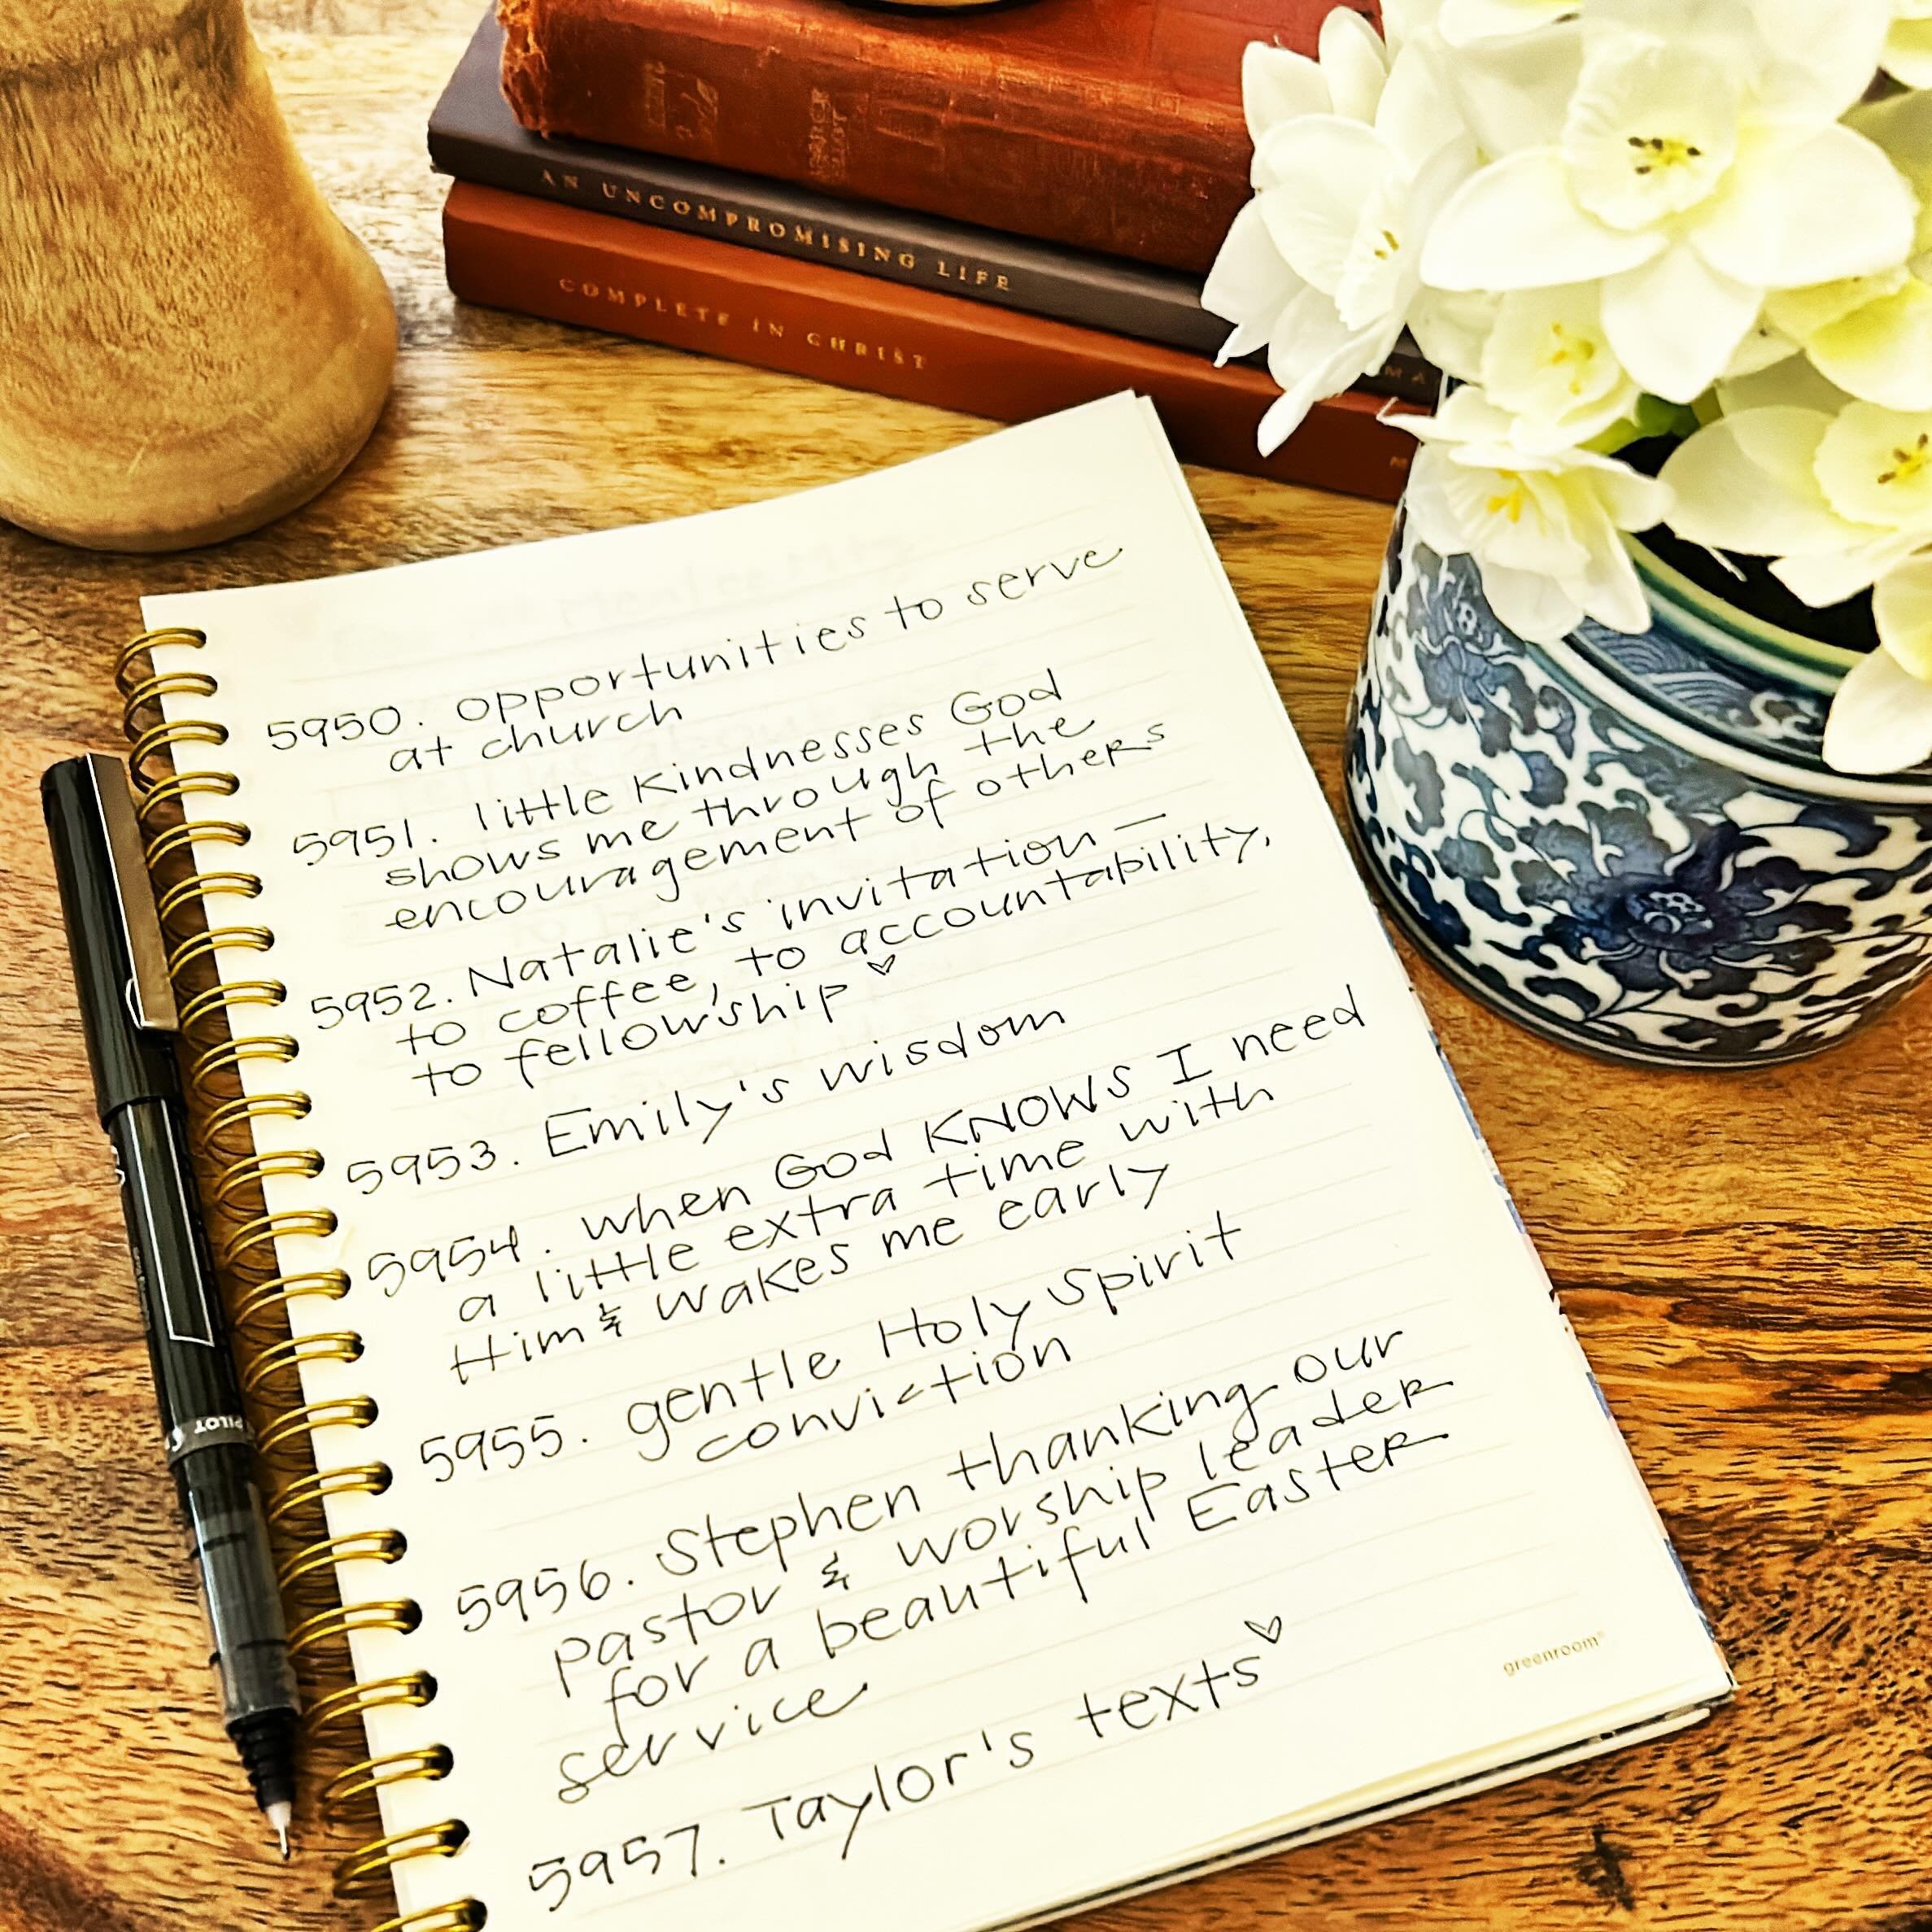 AN UNCOMPROMISING LIFE
COMPLETE IN CHRIST
5950. opportunities to serve
at church
5951. little kindnesses God
shows me through the
encouragement of others
5952. Natalie's invitation —
to coffee, to accountability,
to fellowship ♡
5953. Emily's wisdom
5954. when God KNOWS I need
a little extra time with
Him & wakes me early
5955. gentle Holy Spirit
conviction
5956. Stephen thanking our
pastor & worship leader
for a beautiful Easter
service
5957. Taylor's texts ♡
greenroom®
PILOT